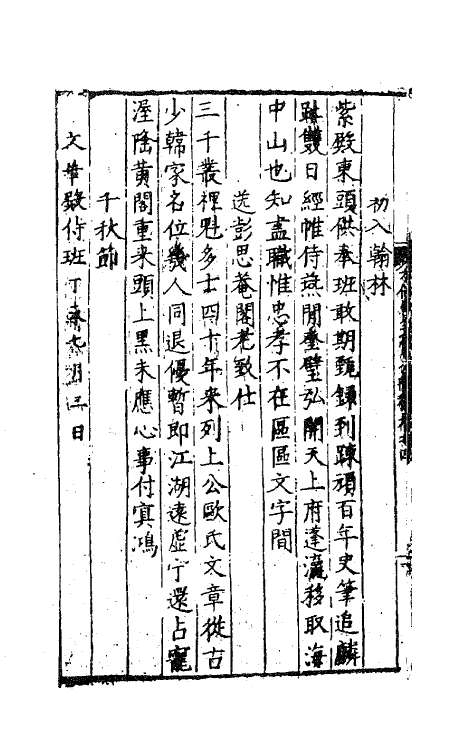 初入翰林
紫殿東頭供奉班敢期甄錄到踈頑百年史筆追麟
趾雙日經帷侍燕閒奎璧弘開天上府蓬瀛移取海
中山也知盡職惟忠孝不在區區文字間
送彭思菴閣老致仕
三千叢裡魁多士四十年來列上公歐氏文章從古
少韓家名位幾人同退優暫即江湖遠虛宁還占寵
渥隆黃閣重來頭上黑未應心事付冥鴻
千秋節
文華殿侍班丁未九月三日